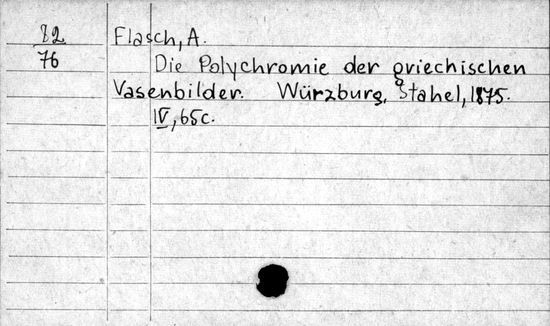 82
76
Flasch, A.
Die Polychromie der griechischen
Vasenbilder. Würzburg, Stahel, 1875.
IV, 65c.